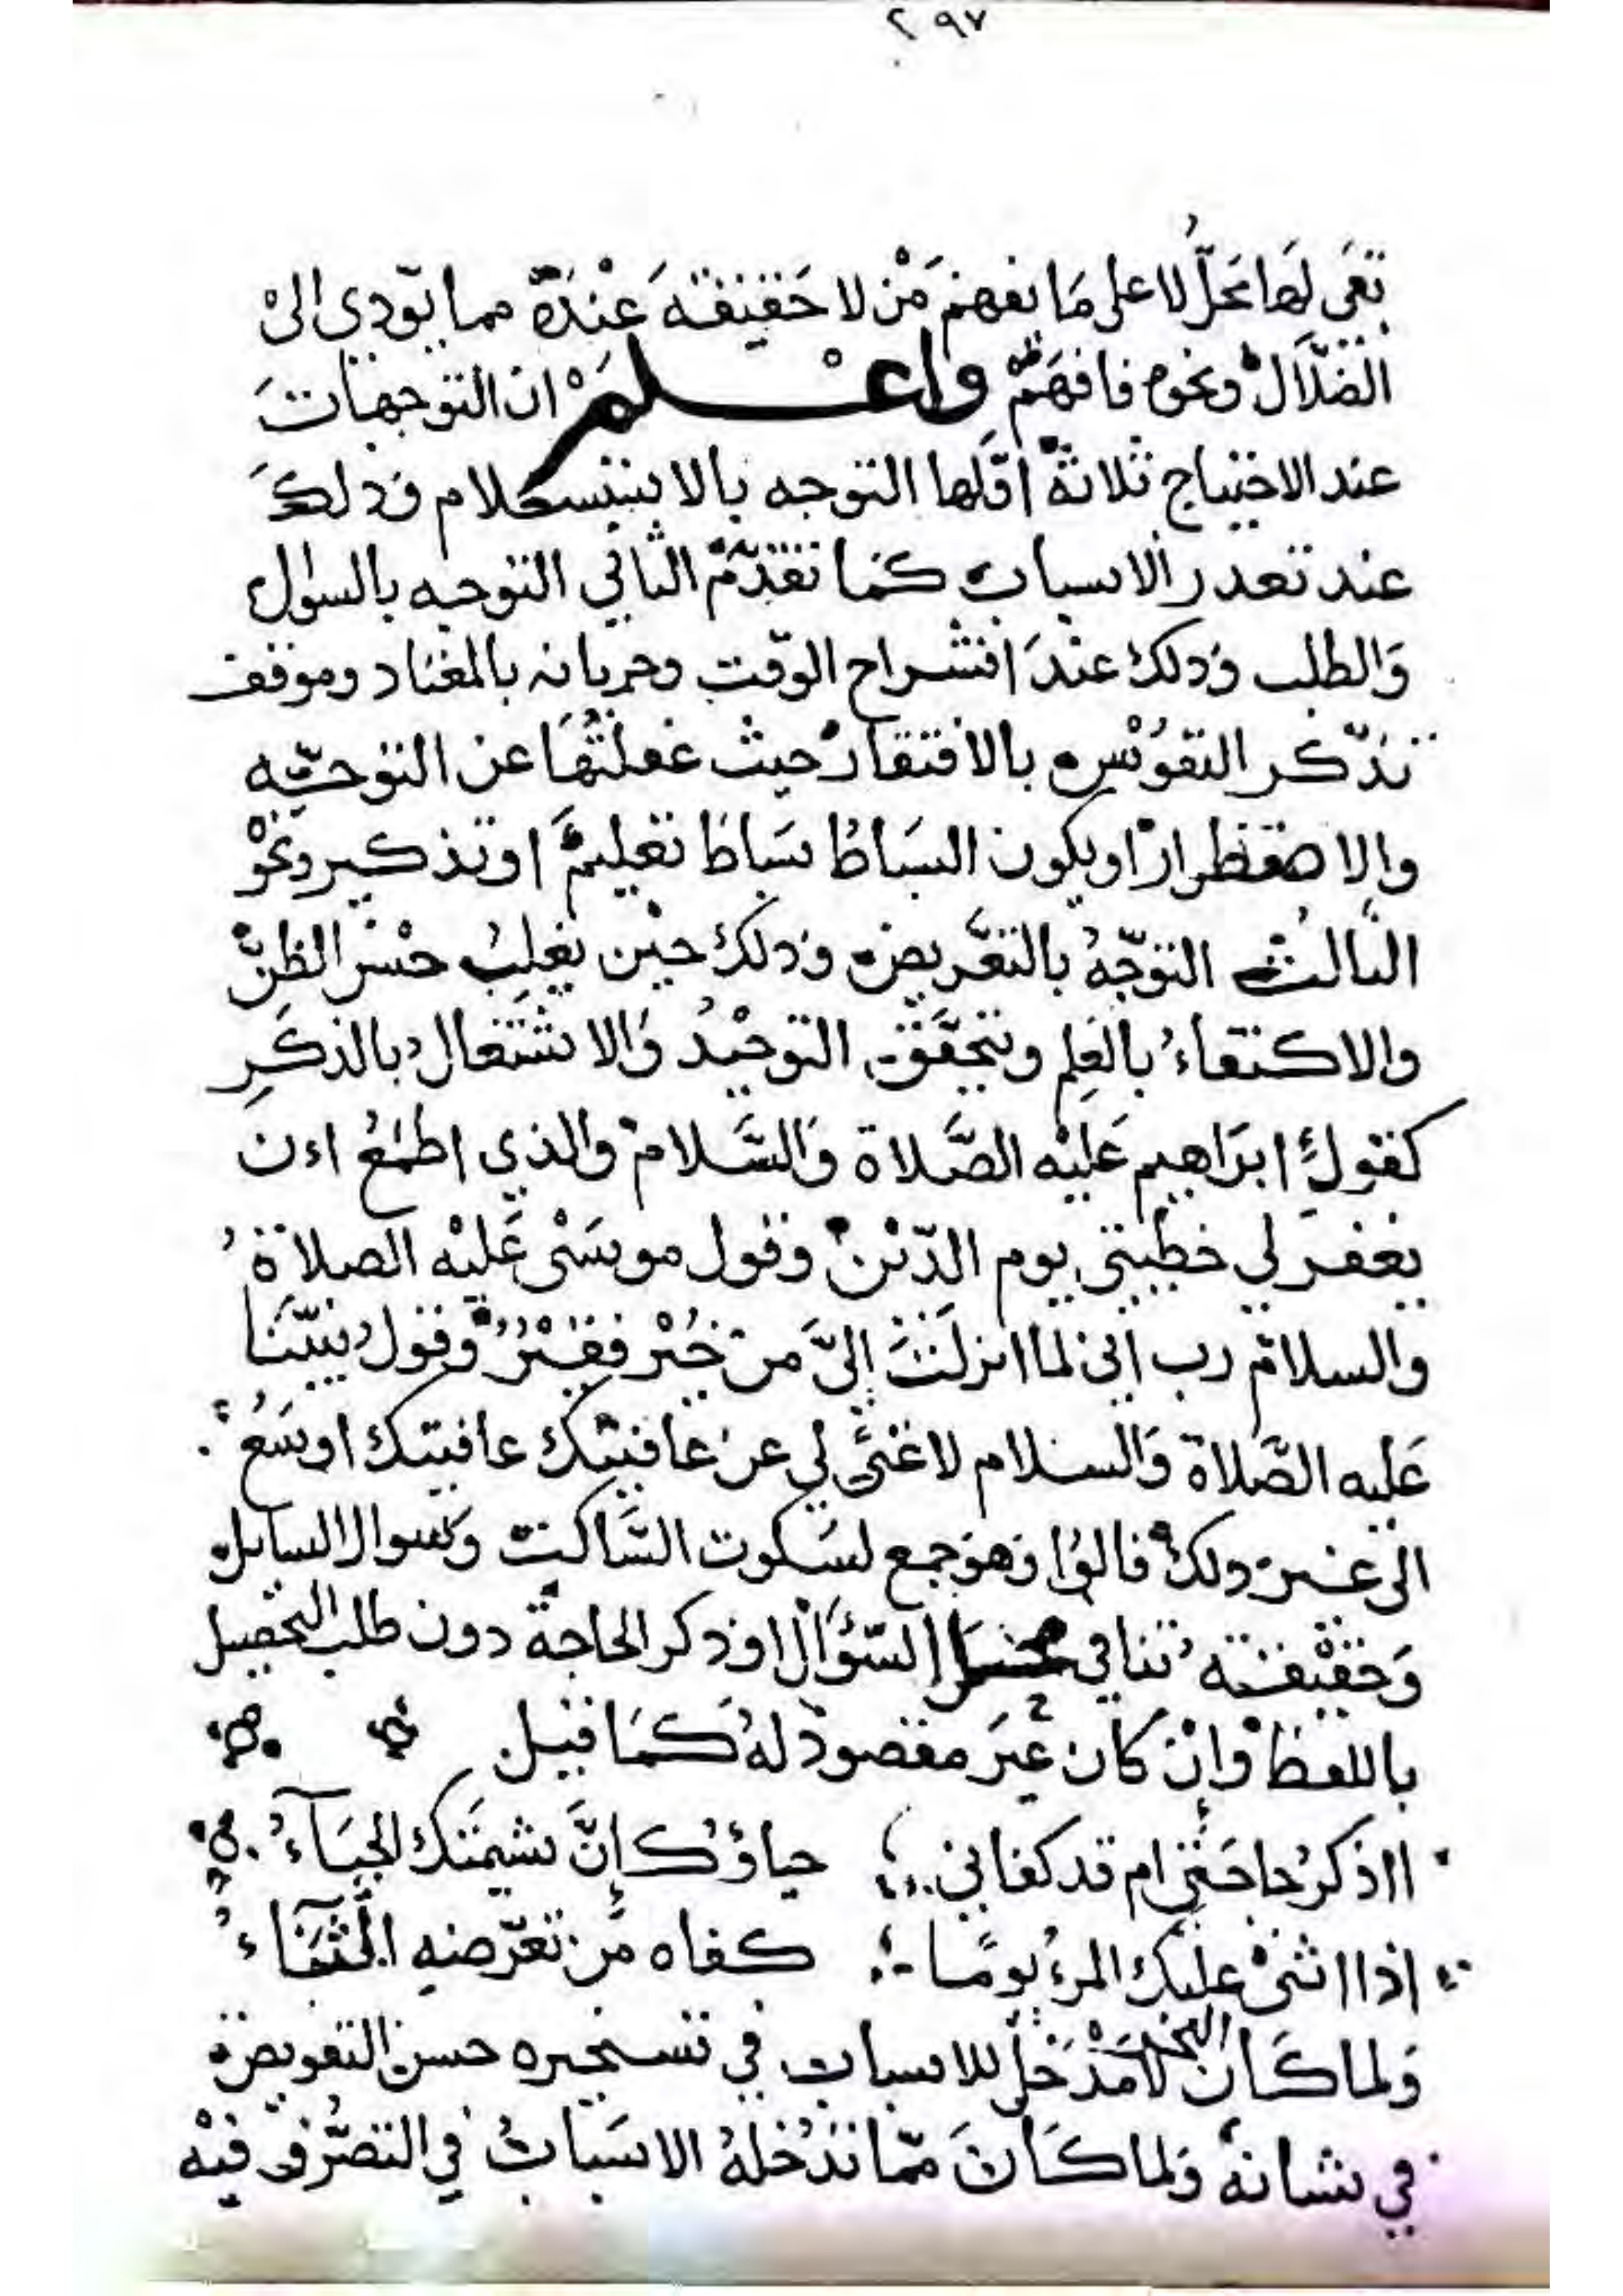 ٢٩٧
تقى لها محل لا على ما يفهم من لا حقيقة عنده مما يؤدي الى
الضلال ونحوه فافهم واعلم ان التوجهات
عند الاحتياج ثلاثة اولها التوجه بالاستسلام وذلك
عند تعذر الاسباب كما تقدم الثاني التوجه بالسوال
والطلب وذلك عند انشراح الوقت وجريانه بالمعتاد وموقف
تذكر النفوس بالافتقار حيث غفلتها عن التوجه
والاضطرار او يكون البساط بساط تعليم او تذكير ونحو
الثالث التوجه بالتعريض وذلك حين يغلب حسن الظن
والاكتفاء بالعلم وتحقق التوحيد والاشتغال بالذكر
كقول ابراهيم عليه الصلاة والسلام والذي اطمع ان
يغفر لي خطيتي يوم الدين وقول موسى عليه الصلاة
والسلام رب اني لما انزلت إلي من خير فقير وقول نبينا
عليه الصلاة والسلام لا غنى لي عن عافيتك عافيتك اوسع
الى غير ذلك قالوا وهو جمع لسكوت الساكت وسوال السايل
وحقيقته تنافي السؤال اذ ذكر الحاجة دون طلب التحصيل
باللفظ وان كان غير مقصود له كما قيل
ااذكر حاجتي ام قد كفاني حياؤك إن شيمتك الحياء
اذا اثنى عليك المرء يوما كفاه من تعرضه الثناء
ولما كان لا مدخل للاسباب في تسخيره حسن التفويض
في شانه ولما كان مما تدخله الاسباب في التصرف فيه